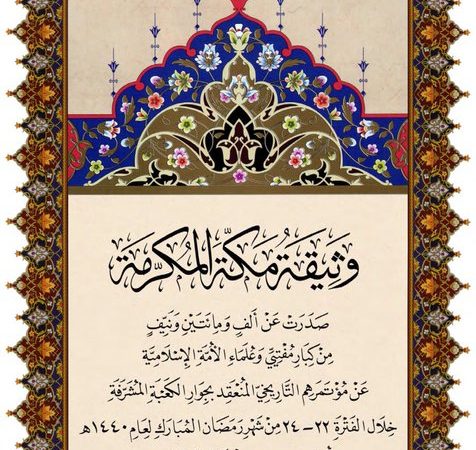 وَثِيقَة مَكَّة المُكَرَّمَة
صَدَرَتْ عَنْ أَلْفٍ وَمِائَتَيْنِ وَنَيِّفٍ
مِنْ كِبَارِ مُفْتِيِّي وَعُلَمَاءِ الأُمَّةِ الإِسْلَامِيَّةِ
عَنْ مُؤْتَمَرِهِمُ التَّارِيخِيِّ المُنْعَقِدِ بِجِوَارِ الكَعْبَةِ المُشَرَّفَةِ
خِلَالَ الفَتْرَةِ ٢٢ – ٢٤ مِنْ شَهْرِ رَمَضَان المُبَارَك لِعَامِ ١٤٤٠هـ